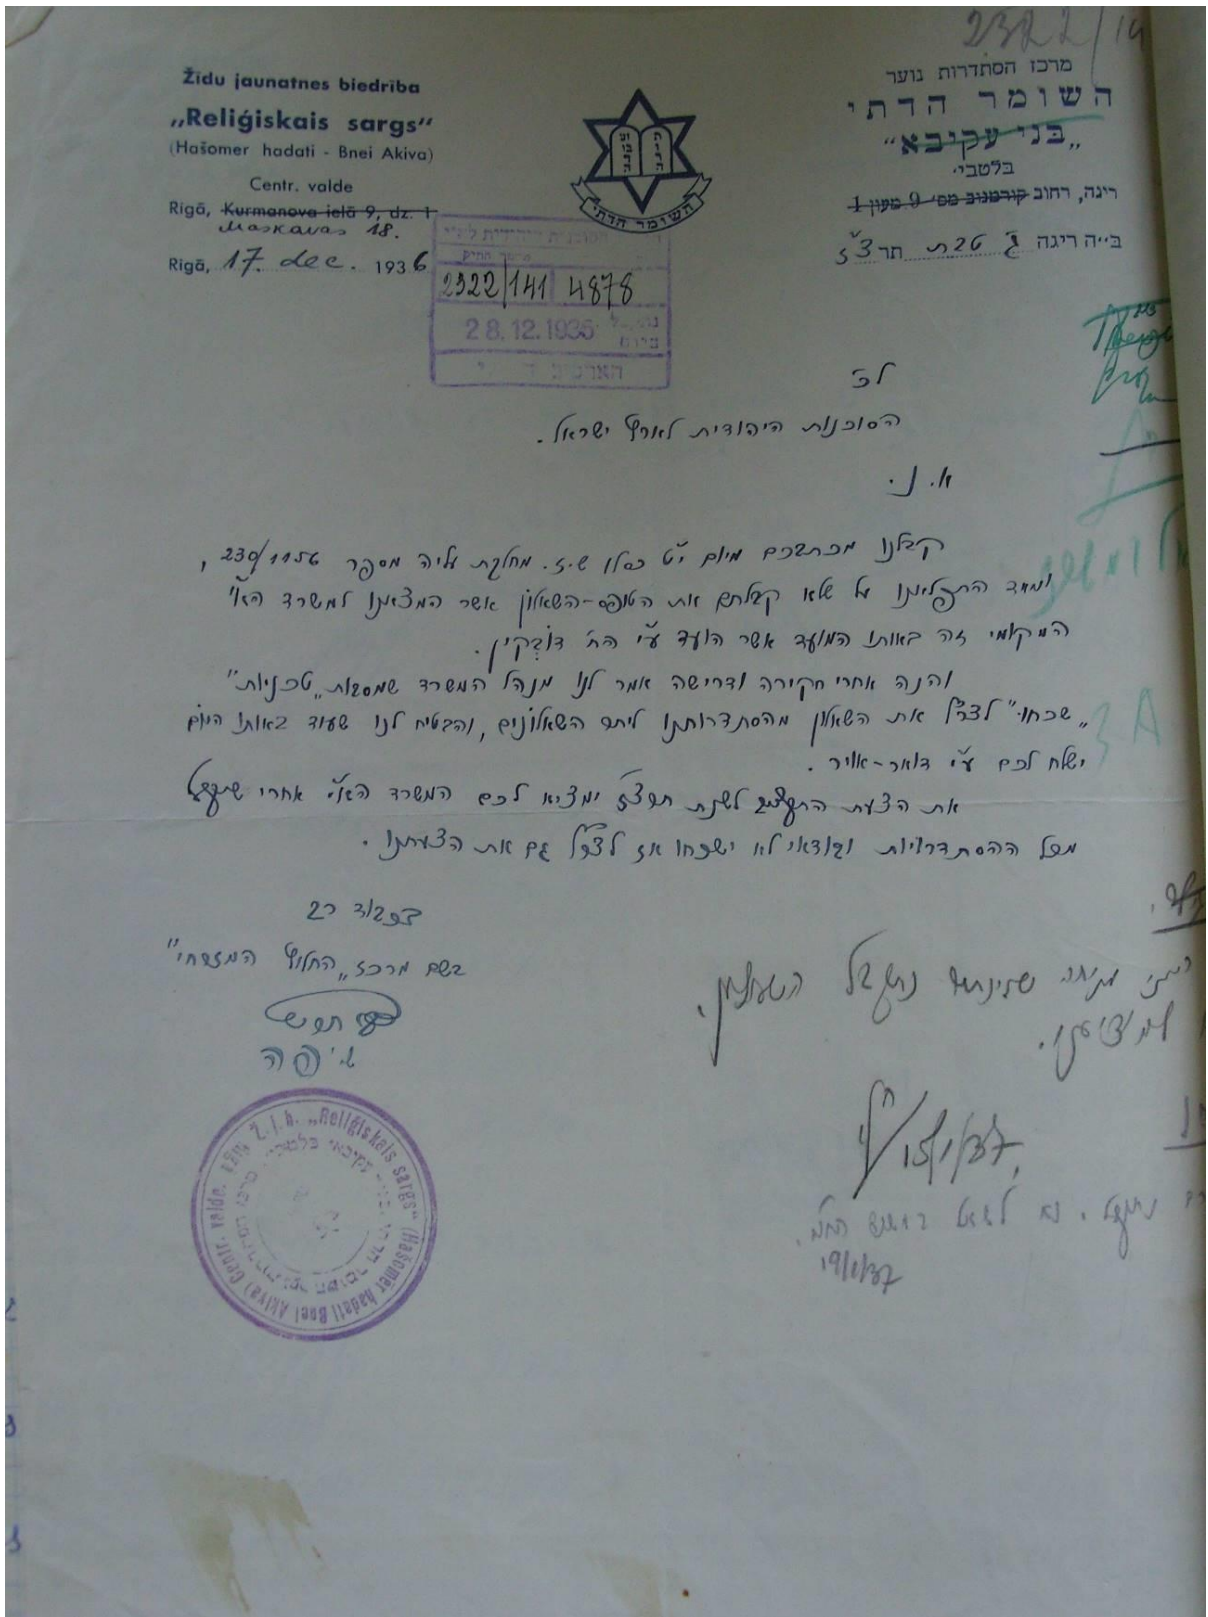 2322/14
Žīdu jaunatnes biedrība
„Reliģiskais sargs"
(Hašomer hadati - Bnei Akiva)
Centr. valde
Rīgā, Kurmanova ielā 9, dz. 1
Maskavas 18.
Rīgā, 17. dec. 1936
מרכז הסתדרות נוער
השומר הדתי
„בני עקיבא"
בלטבי'
ריגה, רחוב קורמנוב מס' 9 מעון 1
ב"ה ריגה ג' טבת תרצ"ז
השומר הדתי
2322/141 4878
28.12.1936
לכ'
הסוכנות היהודית לארץ ישראל.
א. נ.
קבלנו מכתבכם מיום י"ט כסלו ש.ז. מחלקת עליה מספר 230/1156,
ומאד התפלאנו על שלא קבלתם את הטופס-השאלון אשר המצאנו למשרד הא"י
המקומי זה באותו המועד אשר הועד ע"י הח' דובקין.
והנה אחרי חקירה ודרישה אמר לנו מנהל המשרד שמסבות „טכניות"
„שכחו" לצרף את השאלון מהסתדרותנו ליתר השאלונים, והבטיח לנו שעוד באותו היום
ישלח לכם ע"י דואר-אויר.
את הצעת התקציב לשנת תרצ"ז ימציא לכם המשרד הא"י אחרי שיקבל
מכל ההסתדרויות ובודאי לא ישכחו אז לצרף גם את הצעתנו.
בכבוד רב
בשם מרכז „החלוץ המזרחי"
נתקבל השאלון.
15/1/37
נתקבל. נא לשאל
19/1/37
Ž. j. b. „Reliģiskais sargs" (Hašomer hadati Bnei Akiva) Centr. valde. Rīgā